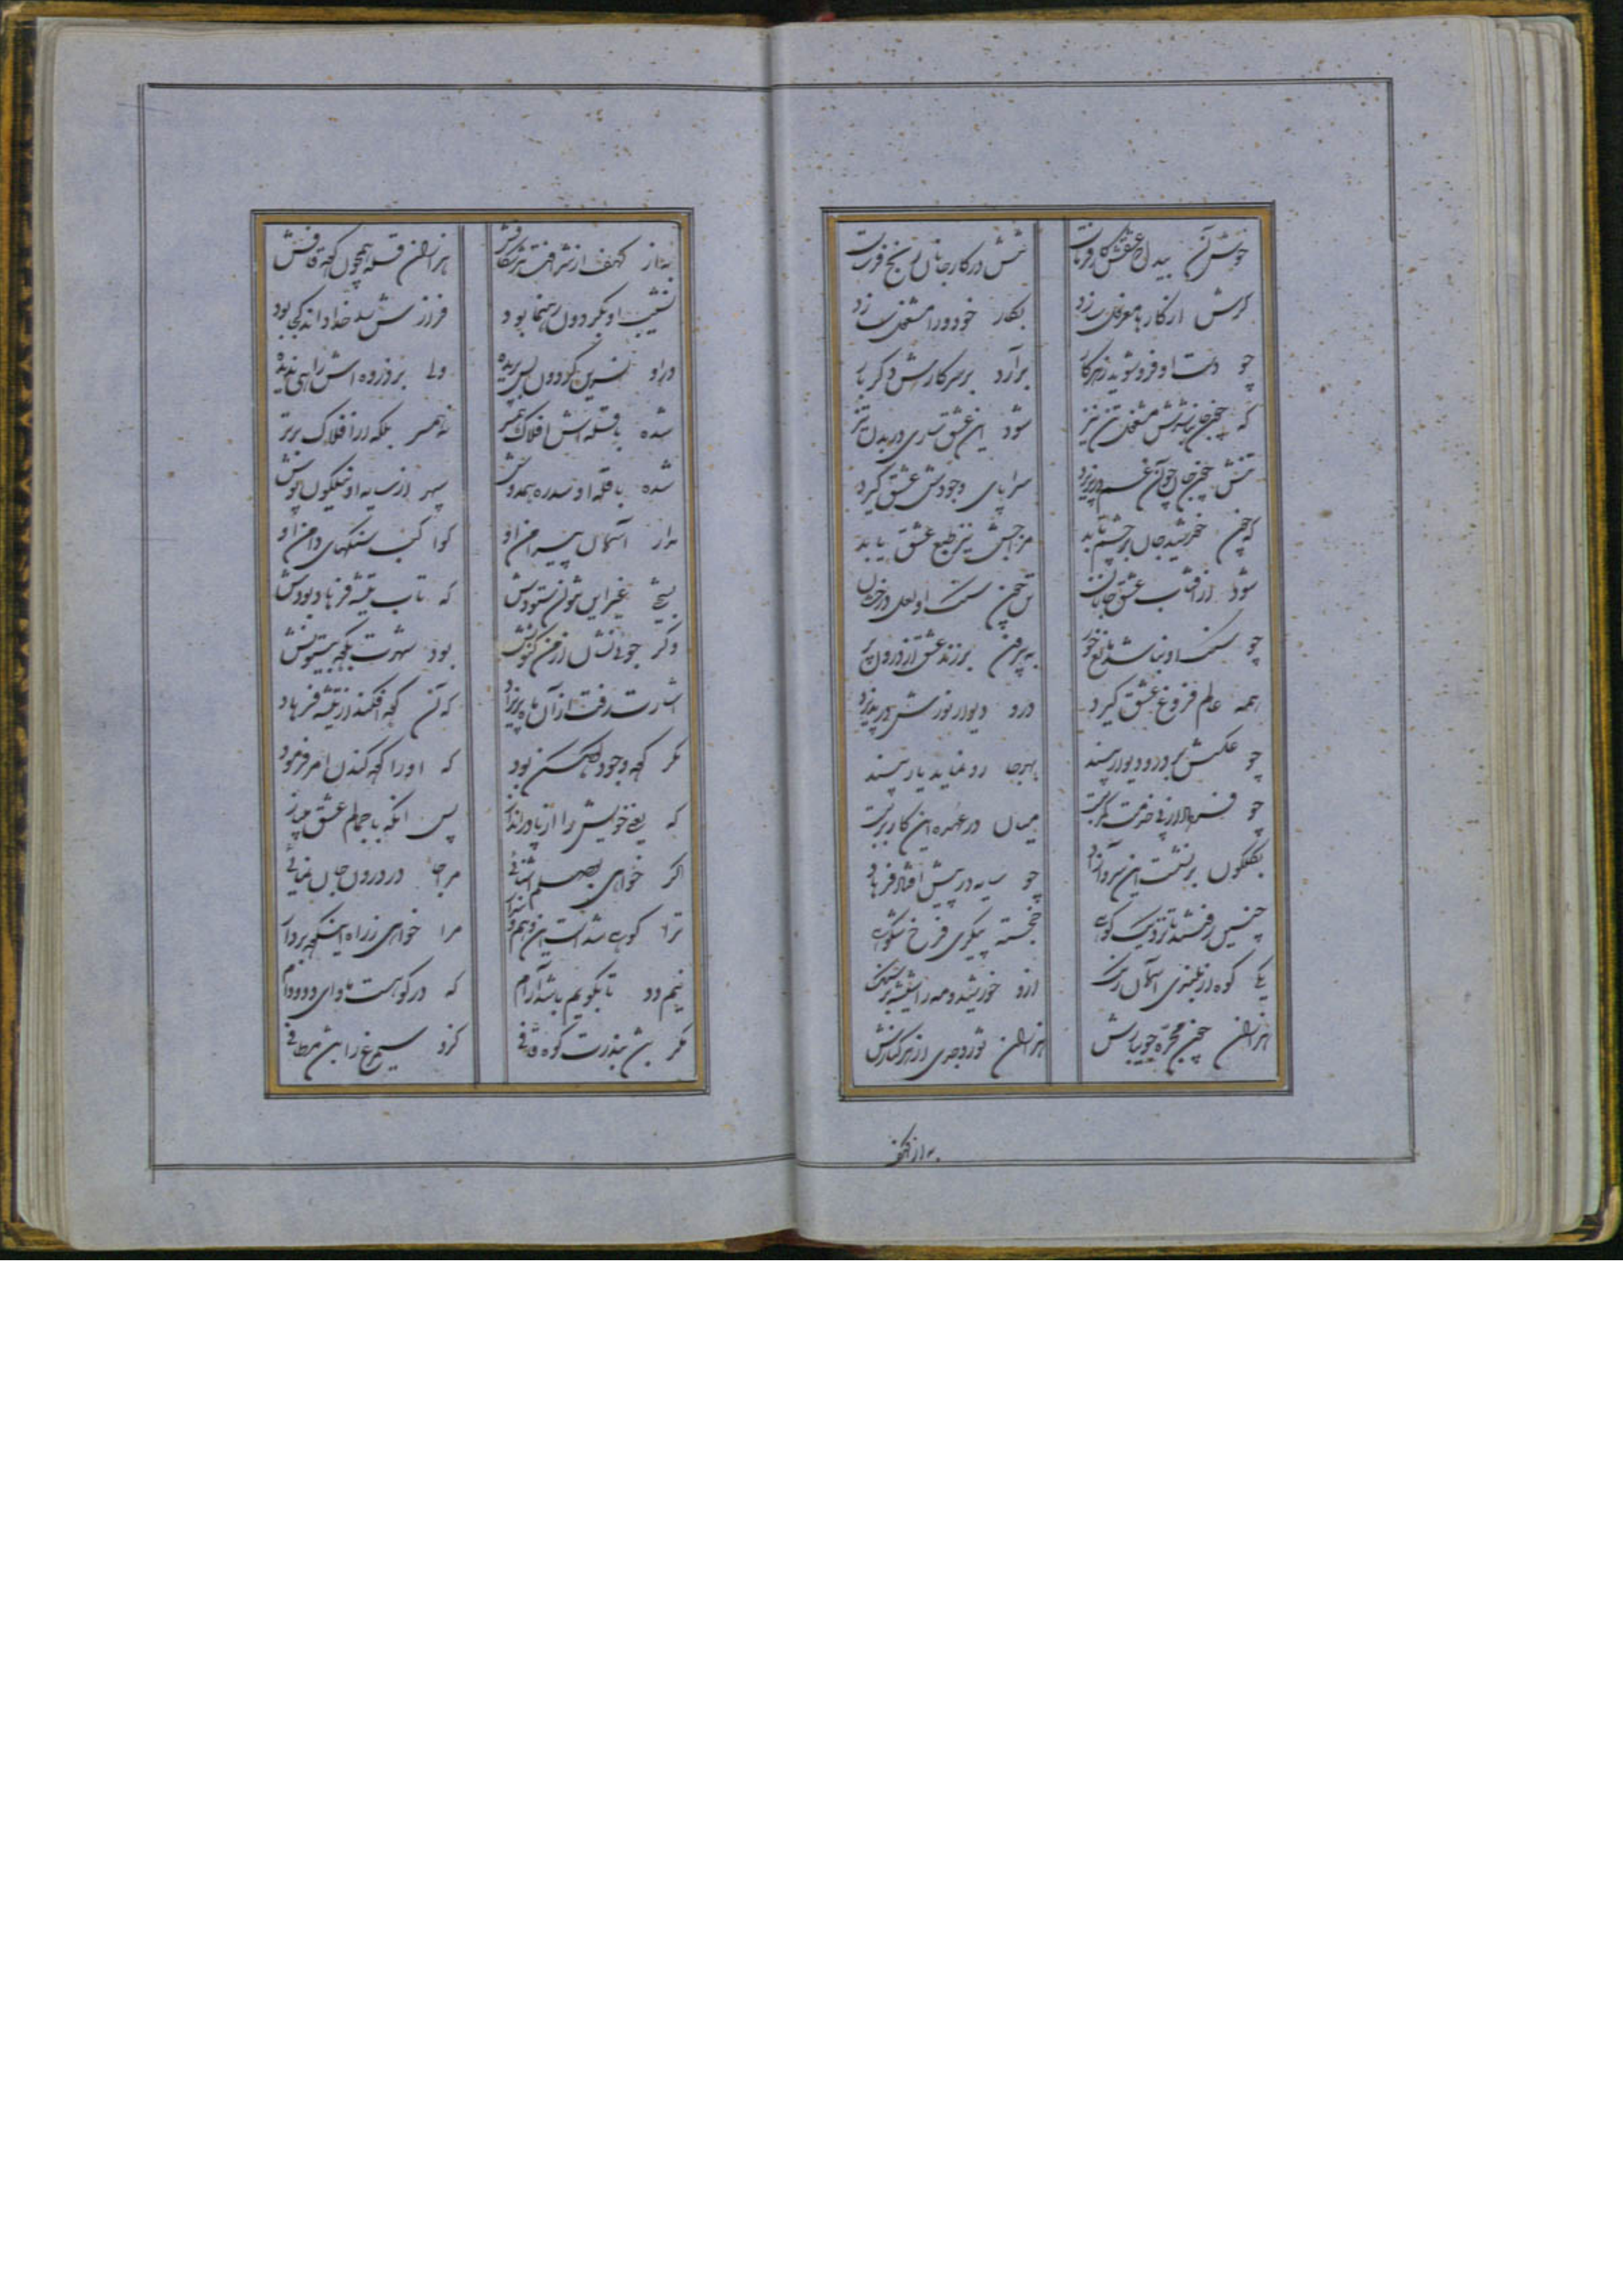 خوش آن بیدل که عشقش کارفرماست تنش در کار جانان رنج فرساست
گرش از کارها معزول سازد بکار خود ورا مشغول سازد
چو دست او فروشوید ز هر کار برآرد بر سر کارش دگر بار
که چون جانش شد مشغول تن نیز شود این عشق ساری در بدن نیز
تنش چون جان چو آن غم درپذیرد سراپای وجودش عشق گیرد
که چون خورشید جان بر جسم تابد مزاجش نیز طبع عشق یابد
شود از آفتاب عشق جانان تن چون سنگ او لعل درخشان
چو سنگ او نباشد مانع خور به پیرامن برزند عشق از درون پر
همه عالم فروغ عشق گیرد در و دیوار نورش درپذیرد
چو عکسش بر در و دیوار بیند بهر جا رو نماید یار بیند
چو فرهاد از پی خدمت کمر بست میان در عهده این کار بربست
بگلگون برنشست آن سرو آزاد چو سایه در پیش افتاد فرهاد
چنین رفتند تا نزدیک کوهی خجسته پیکری فرخ شکوهی
یکی کوه از بلندی آسمان رنگ ازو خورشید و مه را شیشه بر سنگ
هزاران چون مجره جویبارش هزاران ثور و جدی از هر کنارش
به از کهف
به از کهف از شرافت هر شکافش هزاران قله همچون کوه قافش
نشیب او بگردون رهنما بود فرازش را خدا داند کجا بود
در او نسرین گردون بس پریده ولی بر ذروه اش راهی ندیده
شده با قله اش افلاک همسر نه همسر بلکه از افلاک برتر
شده با قله او سدره همدوش سپهر از سایه او نیلگون پوش
مدار آسمان پیرامن او کواکب سنگهای دامن او
بسختی غیر ازین نتوان ستودش که تاب تیشه فرهاد بودش
وگر جوئی نشان از من کنونش بود شهرت بکوه بیستونش
اشارت رفت از آن ماه پریزاد که آن کوه افکند از تیشه فرهاد
مگر کوه وجود کوهکن بود که او را کوه کندن امر فرمود
که یعنی خویش را از پا درانداز پس آنگه با جمالم عشق میباز
اگر خواهی بوصلم آشنائی مرا جا در درون جان نمائی
ترا کوهی شد است این وهم و پندار مرا خواهی ز راه این کوه بردار
نیم دد تا بکوهم باشد آرام که در کوهست ماوای دد و دام